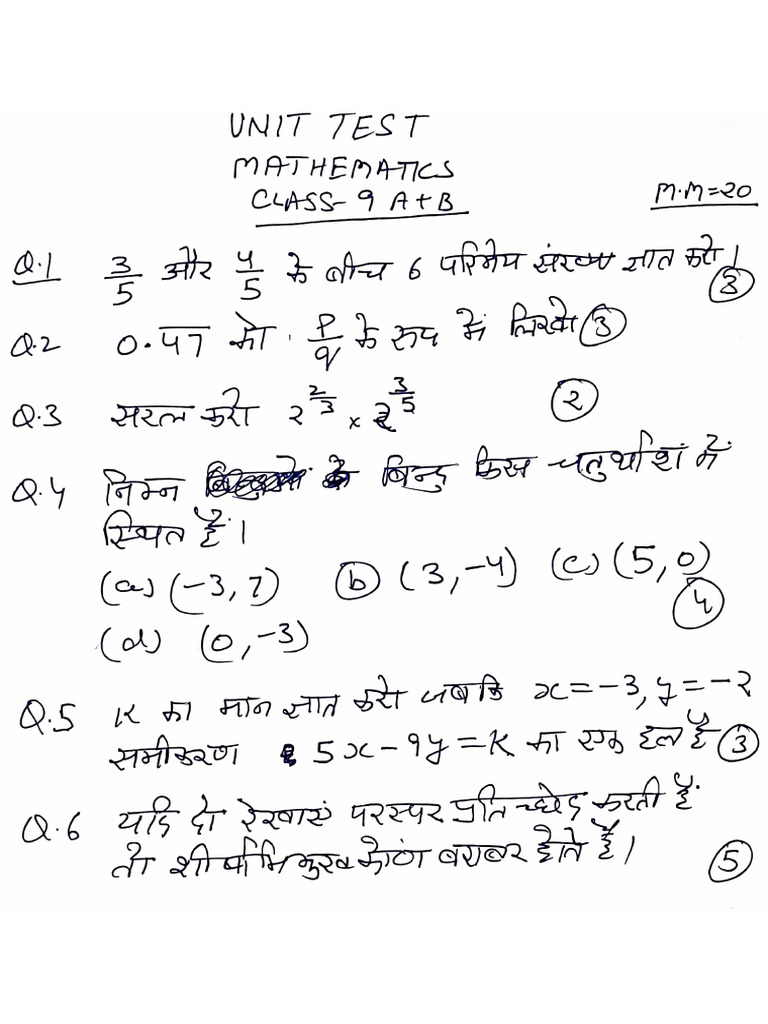 UNIT TEST
MATHEMATICS
CLASS- 9 A+B
M.M=20
Q.1 3/5 और 4/5 के बीच 6 परिमेय संख्या ज्ञात करो। (3)
Q.2 0.47 को p/q के रूप में लिखो (3)
Q.3 सरल करो 2^2/3 × 2^3/5 (2)
Q.4 निम्न बिन्दु किस चतुर्थांश में
स्थित हैं।
(a) (-3, 7) (b) (3, -4) (c) (5, 0) (4)
(d) (0, -3)
Q.5 K का मान ज्ञात करो जबकि x = -3, y = -2
समीकरण 5x - 9y = K का एक हल है (3)
Q.6 यदि दो रेखाएं परस्पर प्रतिच्छेद करती हैं
तो शीर्षाभिमुख कोण बराबर होते हैं। (5)